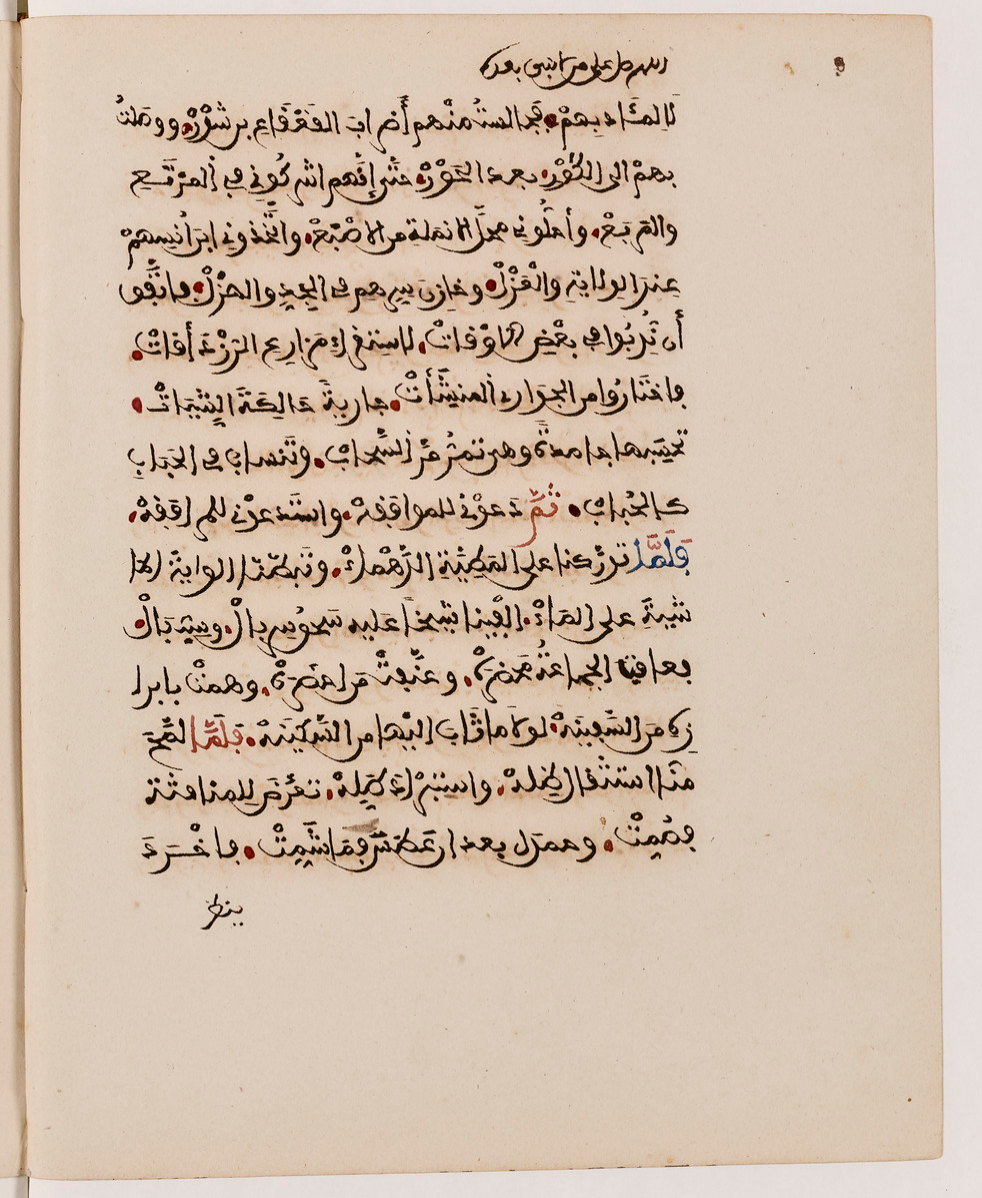 اللهم صل على من لا نبي بعده
لا لمئادبهم فجالست منهم أضراب القعقاع بن شور ووصلت
بهم الى الكور بعد الحور حتى إنهم اشركوني في المرتع
والمربع وأحلوني محل الانملة من الاصبع واتخذوني ابن أنسهم
عند الولاية والعزل وخازن سرهم في الجد والهزل فاتفق
أن ندبوا في بعض الاوقات لاستقراء مزارع الرزداقات
فاختاروا من الجواري المنشئأت جارية حالكة الشيات
تحسبها جامدة وهي تمر مر السحاب وتنساب في الحباب
كالحباب ثم دعوني للموافقة واستدعوني للمرافقة
فلما توركنا على المطية الدهماء وتبطنا الواية الما
شية على الماء الفينا شيخا عليه سحق سربال وسب بال
فعافت الجماعة محضره وعنفت من احضره وهمت بابرا
زه من السفينة لولا ما ثاب اليها من السكينة فلما لمح
منا استثقال ظله واستبراد طله تعرض للمنافثة
فصمت وحمدل بعد ان عطس فما شمت فاخرد
ينظر